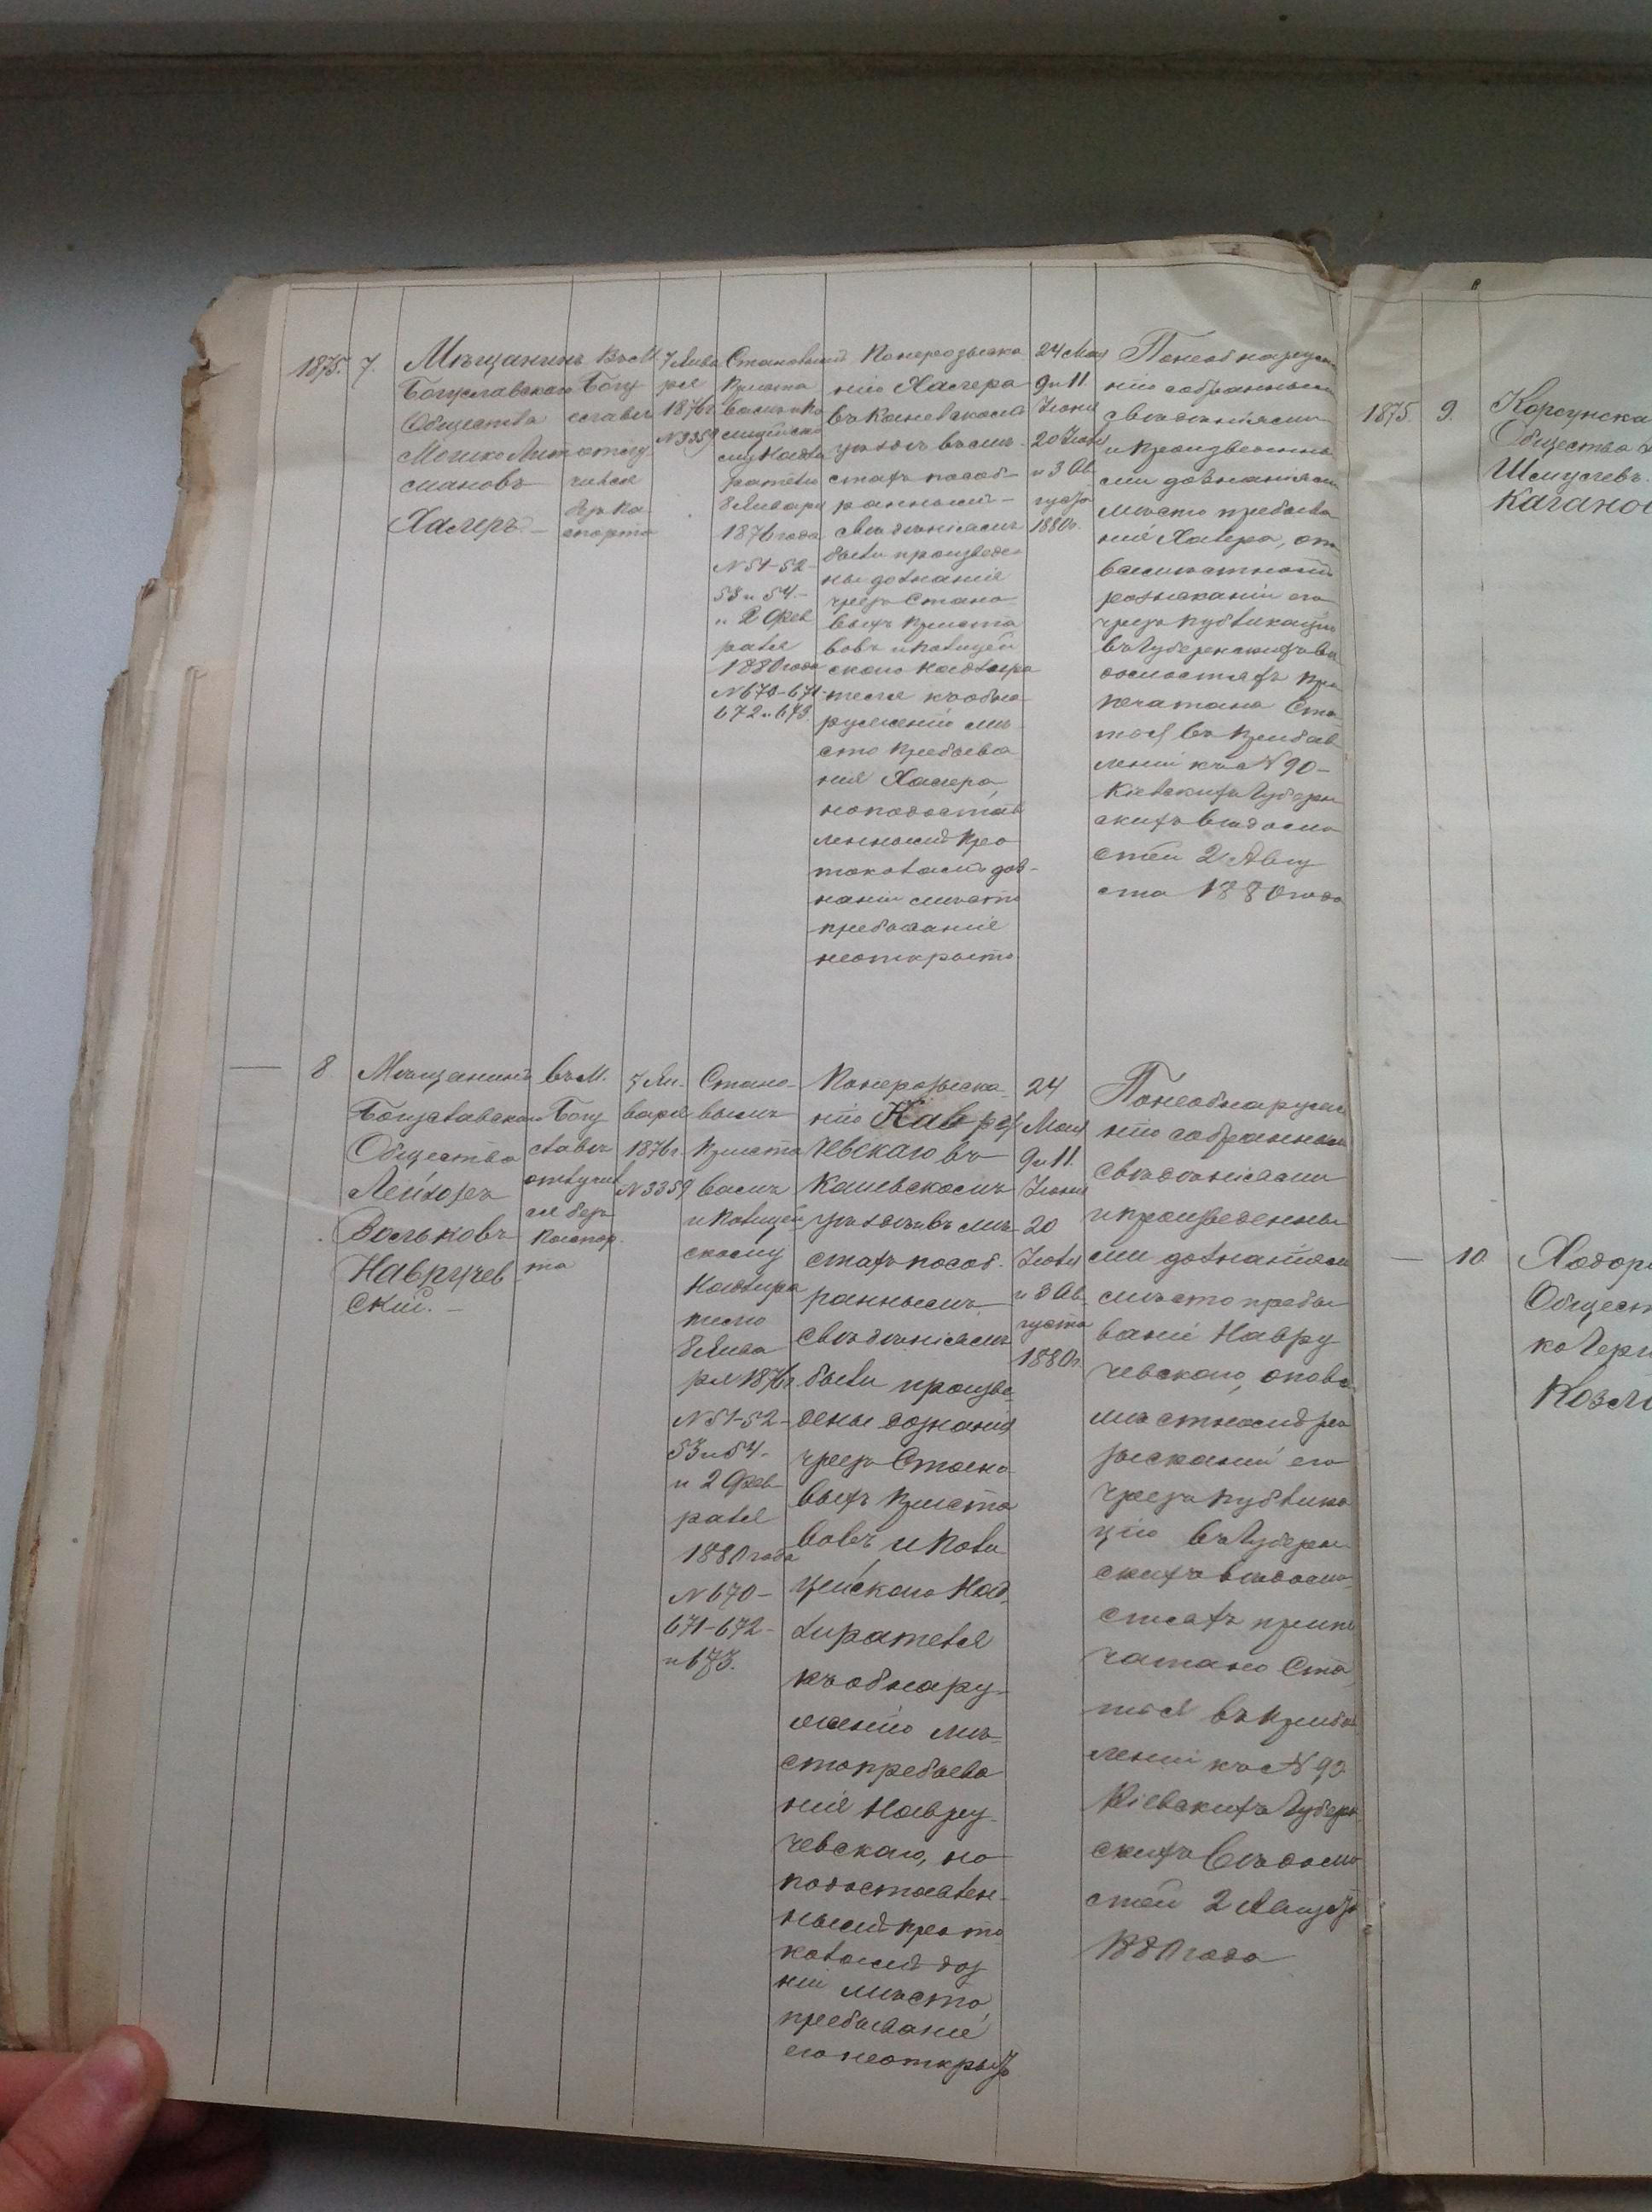 1875. 7.
Мѣщанинъ
Богуславскаго
Общества
Мошко Лит
мановъ
Халеръ. —
Въ М.
Богу
славѣ
отлу
чился
безъ па
спорта
7 Янва
ря
1876 г.
№ 3359
Становымъ
Приста
вамъ и По
лицейско
му Надзи
рателю
8 Января
1876 года
№ 51-52-
53 и 54.-
и 2 Фев
раля
1880 года
№ 670-671-
672 и 673.
По нерозыска
нію Халера
въ Каневскомъ
уѣздѣ въ мѣ-
стахъ по соб-
раннымъ —
свѣдѣніямъ
были произведе-
ны дознанія
чрезъ Стано-
выхъ Приста
вовъ и Полицей
скаго Надзира
теля къ обна-
руженію мѣ-
сто пребыва
нія Халера,
но по достав
леннымъ Про
токоламъ доз-
нанія мѣсто
пребываніе
не открыто.
24 Мая
9 и 11
Іюня
20 Іюля
и 3 Ав
густа
1880 г.
По необнаруже
нію собранными
свѣдѣніями
и произведенны
ми дознаніями
мѣсто пребыва
нія Халера, о по
всемѣстномъ
розысканіи его
чрезъ публикацію
въ Губернскихъ Вѣ
домостяхъ при
печатана Ста
тья въ Прибав
леніи къ № 90 -
Кіевскихъ Губерн
скихъ Вѣдомо
стей 2 Авгу
ста 1880 года
— 8
Мѣщанинъ
Богуславскаго
Общества
Лейзоръ
Вольковъ
Навручев
скій. —
въ М.
Богу
славѣ
отлучил
ся безъ
паспор
та
7 Ян-
варя
1876 г.
№ 3359
Стано-
вымъ
Приста
вамъ
и Полицей
скому
Надзира
телю
8 Янва
ря 1876 г.
№ 51-52-
53 и 54-
и 2 Фев
раля
1880 года
№ 670-
671-672-
и 673.
По нерозыска-
нію Навру
чевскаго въ
Каневскомъ
уѣздѣ въ мѣ-
стахъ по соб-
раннымъ —
свѣдѣніямъ
были произве-
дены дознанія
чрезъ Стано-
выхъ Приста
вовъ и Поли
цейскаго Над-
зирателя
къ обнару-
женію мѣ-
сто пребыва
нія Навру-
чевскаго, но
по доставлен-
нымъ Прото
коламъ доз
ній мѣсто
пребываніе
его не открыто
24
Мая
9 и 11.
Іюня
20
Іюля
и 3 Ав-
густа
1880 г.
По необнаруже
нію собранными
свѣдѣніями
и произведенны
ми дознаніями
мѣсто пребы-
ваніе Навру
чевскаго, о повсе
мѣстномъ ро
зысканіи его
чрезъ публика
цію въ Губерн-
скихъ вѣдомо-
стяхъ припе
чатано Ста
тья въ Прибав
леніи къ № 90
Кіевскихъ Губерн
скихъ Вѣдомо
стей 2 Августа
1880 года
1875. 9.
Корсунска
Общества
Шмулевъ
Кагано
— 10
Ходор
Общест
ко Гер
Козл